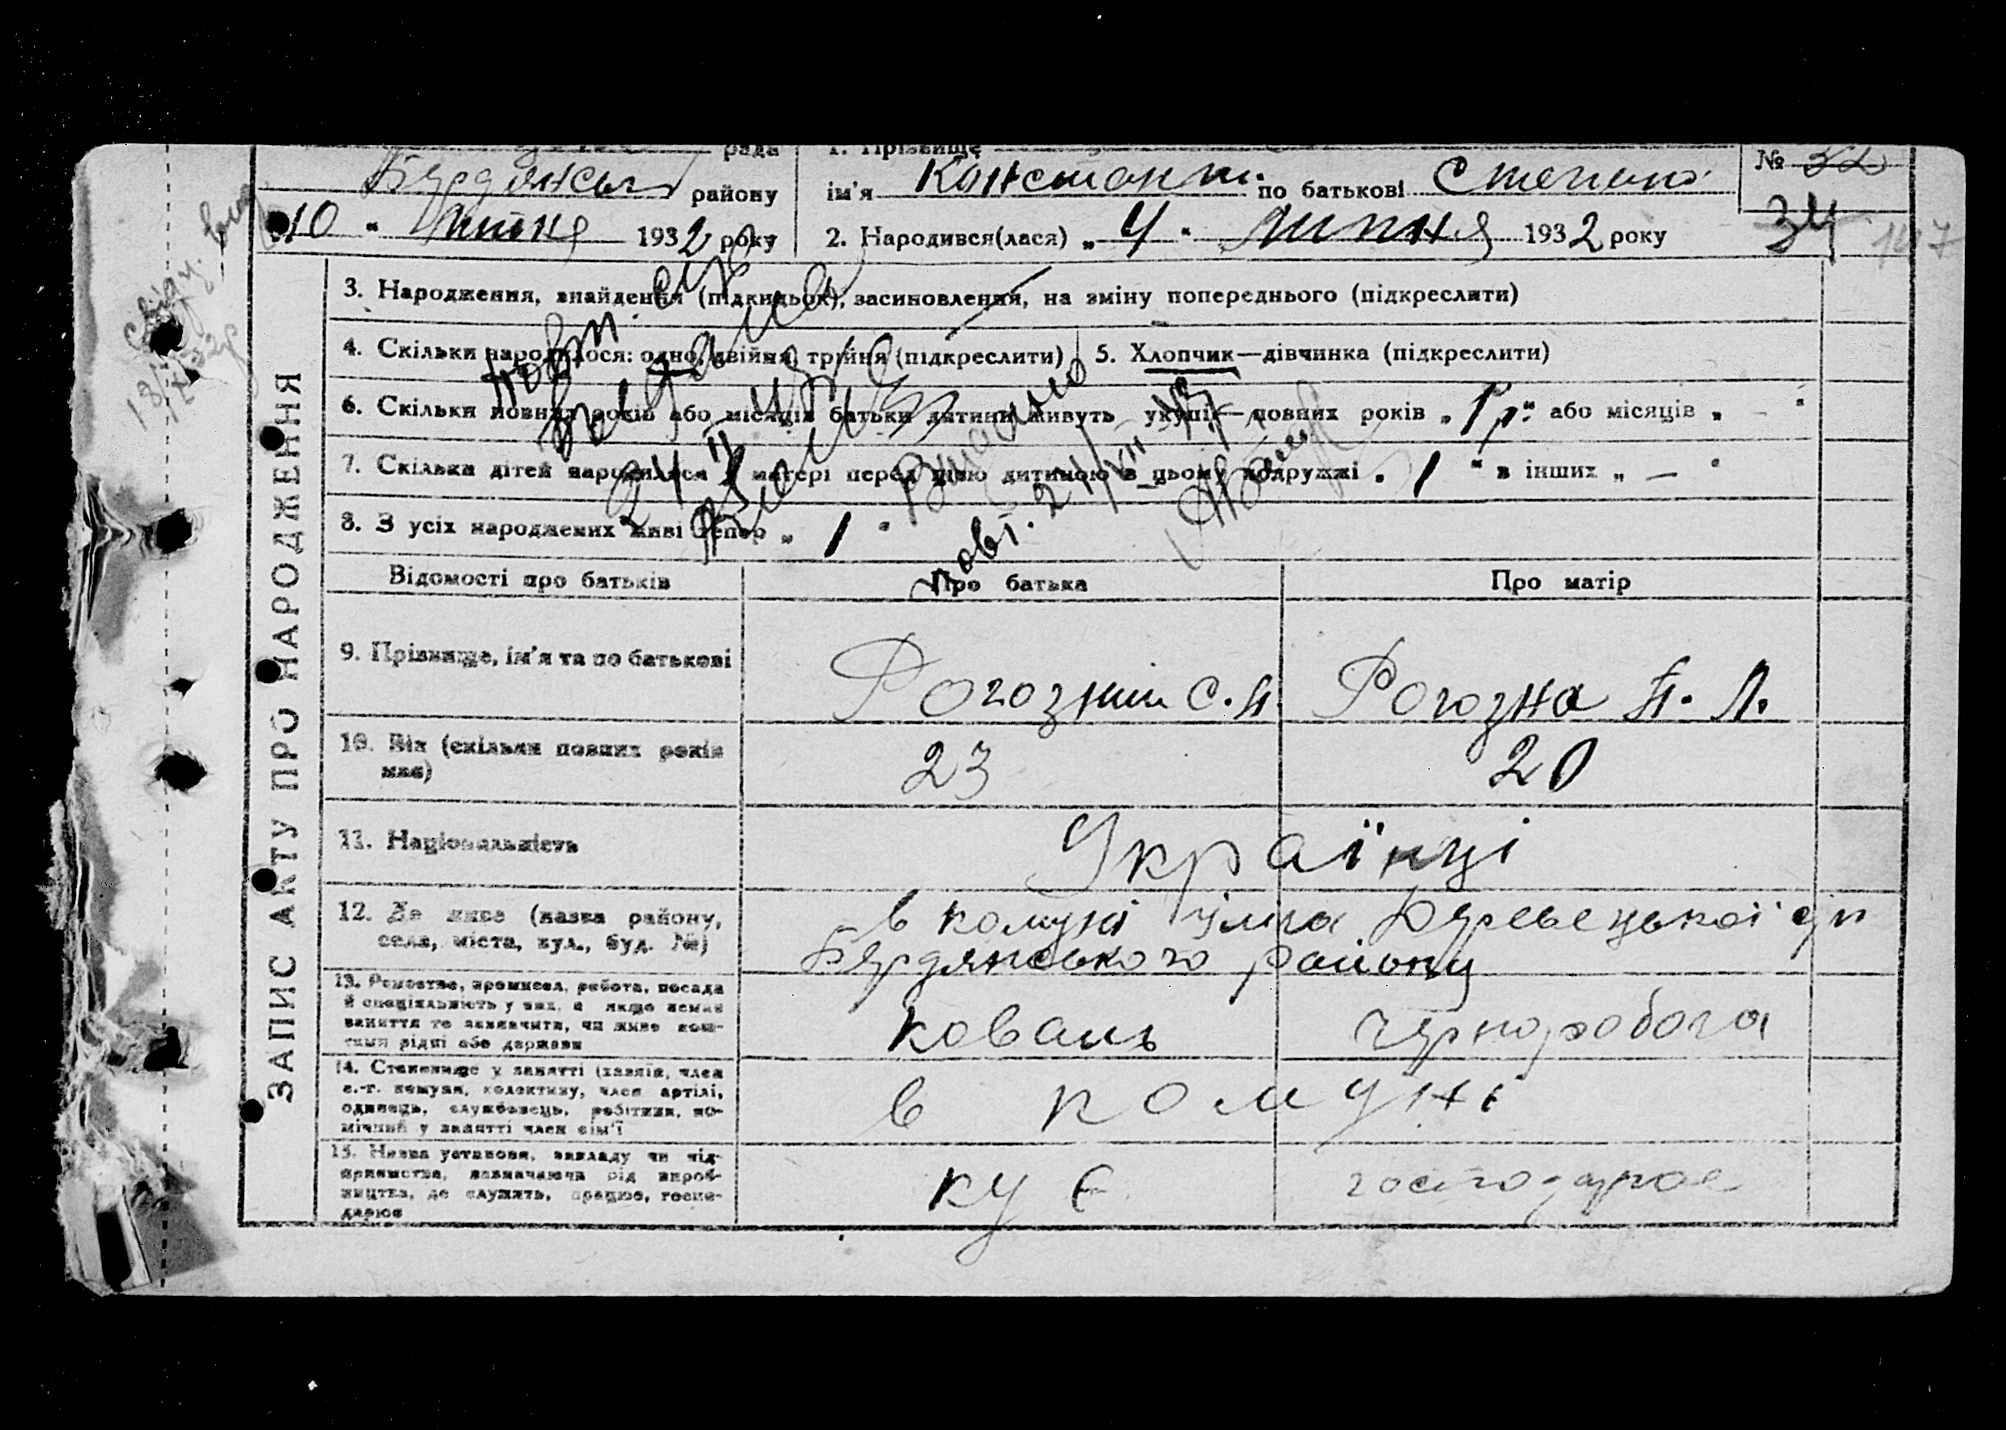 рада 1. Прізвище
Бердянськ району ім'я Констант. по батькові Степанов № 32
10 " Липня 1932 року 2. Народився(лася) „ 4 " Липня 1932 року 34 147
ЗАПИС АКТУ ПРО НАРОДЖЕННЯ
3. Народження, знайдення (підкидьок), засиновлення, на зміну попереднього (підкреслити)
4. Скільки народилося: одно, двійня, трійня (підкреслити) 5. Хлопчик—дівчинка (підкреслити)
6. Скільки повних років або місяців батьки дитини живуть укупі— повних років „ 1 р." або місяців „ - "
7. Скільки дітей народилося у матері перед цією дитиною в цьому подружжі „ 1 " в інших „ — "
8. З усіх народжених живі тепер „ 1 "
повт.
Видано
повт. 24/VII-43
Відомості про батьків Про батька Про матір
9. Прізвище, ім'я та по батькові Рогозний С. П. Рогозна П. Л.
10. Вік (скільки повних років має) 23 20
11. Національність Українці
12. Де живе (назва району, в комуні
села, міста, вул., буд. №) Бердянського району
13. Ремество, промисел, робота, посада
й спеціяльність у них, а якщо немає
заняття то зазначити, чи живе кош-
тами рідні або держави коваль чорноробоча
14. Становище у занятті (хазяїн, член
с.-г. комуни, колективу, член артілі,
одинець, службовець, робітник, по-
мічний у занятті член сім'ї в комуні
15. Назва установи, закладу чи під-
приємства, зазначаючи рід вироб-
ництва, де служить, працює, госпо-
дарює кує господарює